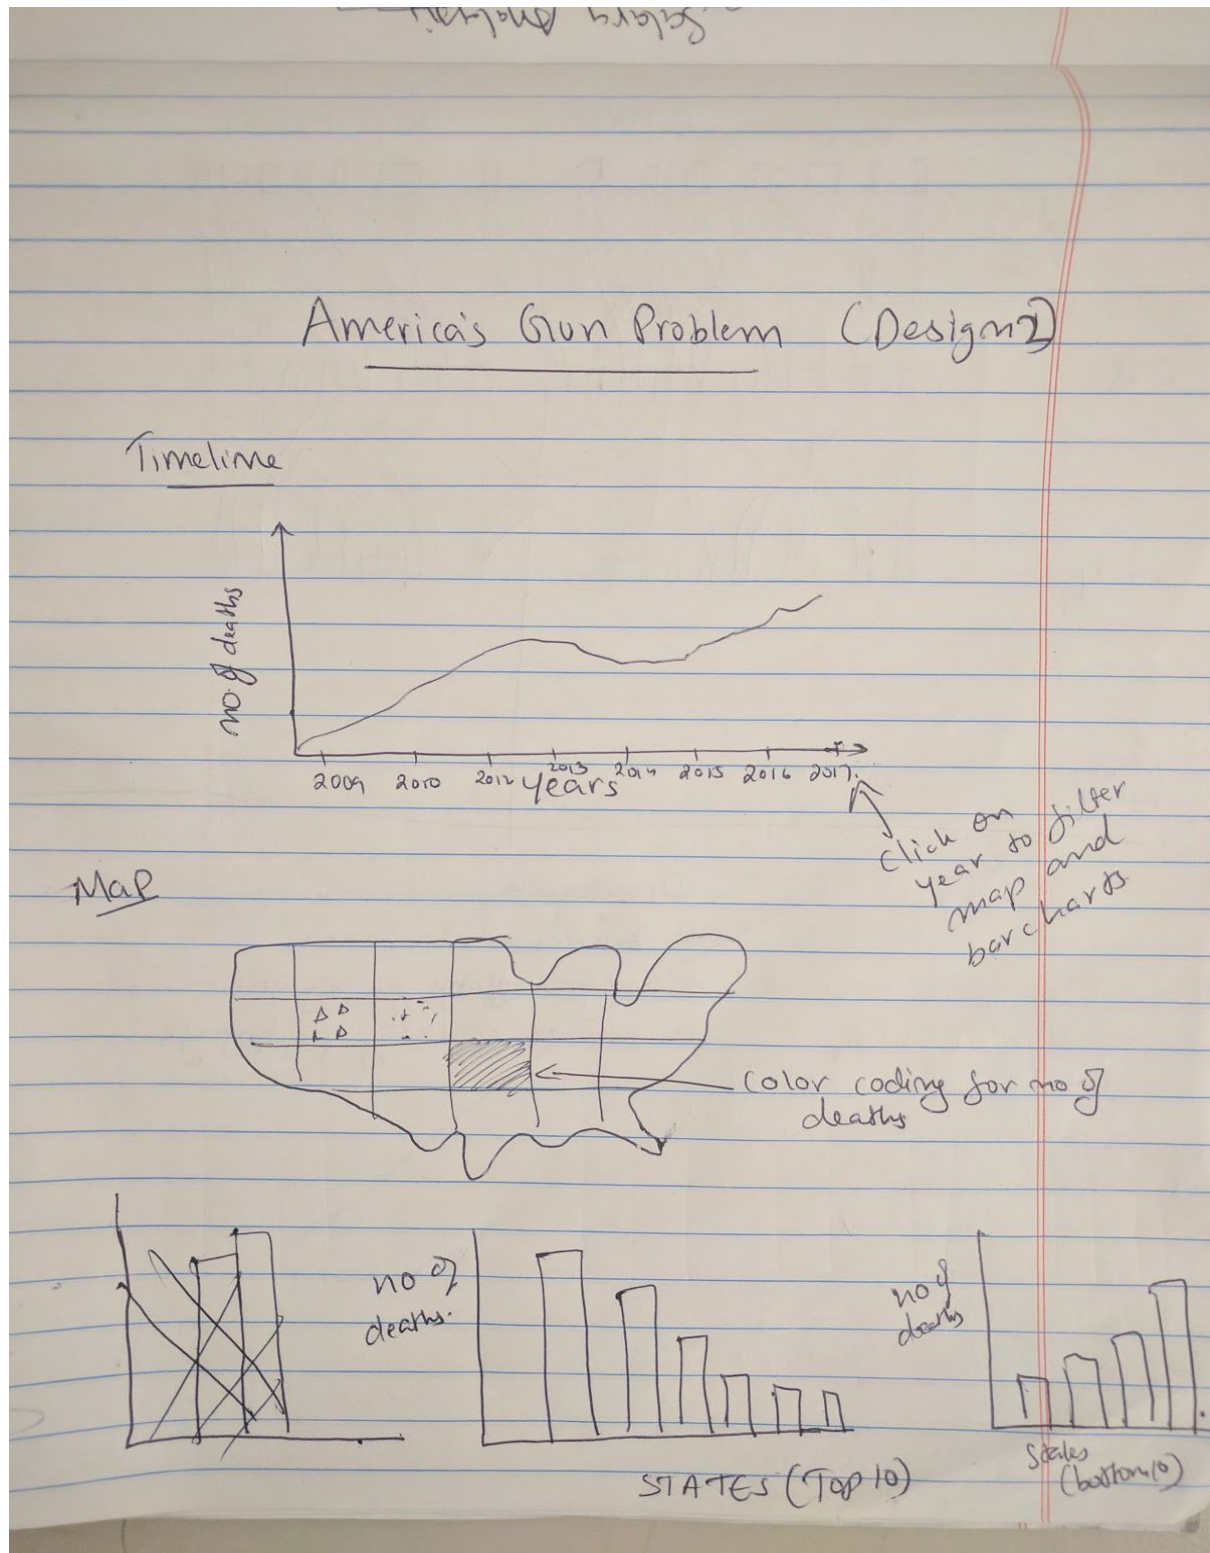 Salary Analysis
America's Gun Problem (Design 2)
Timeline
no. of deaths
2009 2010 2012 2013 2014 2015 2016 2017
years
Click on
year to filter
map and
bar charts
Map
color coding for no of
deaths
no of
deaths.
STATES (Top 10)
no of
deaths
States
(bottom 10)